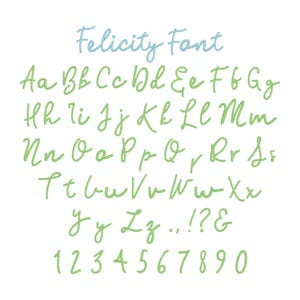 Felicity Font
Aa Bb Cc Dd Ee Ff Gg
Hh Ii Jj Kk Ll Mm
Nn Oo Pp Qq Rr Ss
Tt Uu Vv Ww Xx
Yy Zz .,!?&
1 2 3 4 5 6 7 8 9 0